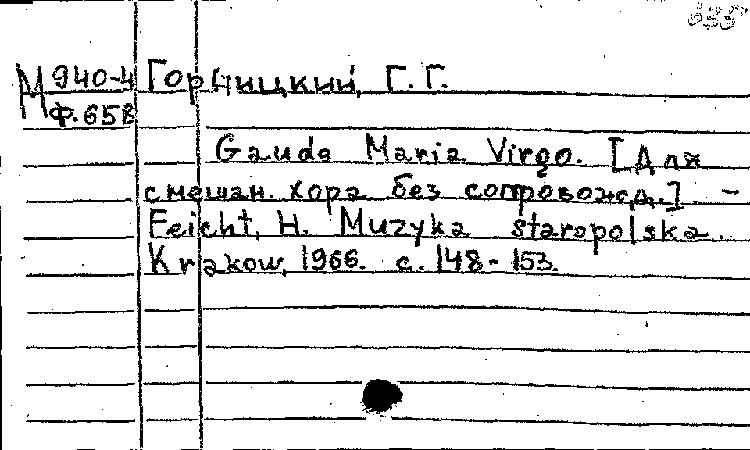 М 940-4 Горчицкий, Г. Г.
Ф. 658
Gaude Maria Virgo. [Для
смешан. хора без сопровожд.] –
Feicht, H. Muzyka staropolska.
Krakow, 1966. с. 148-153.